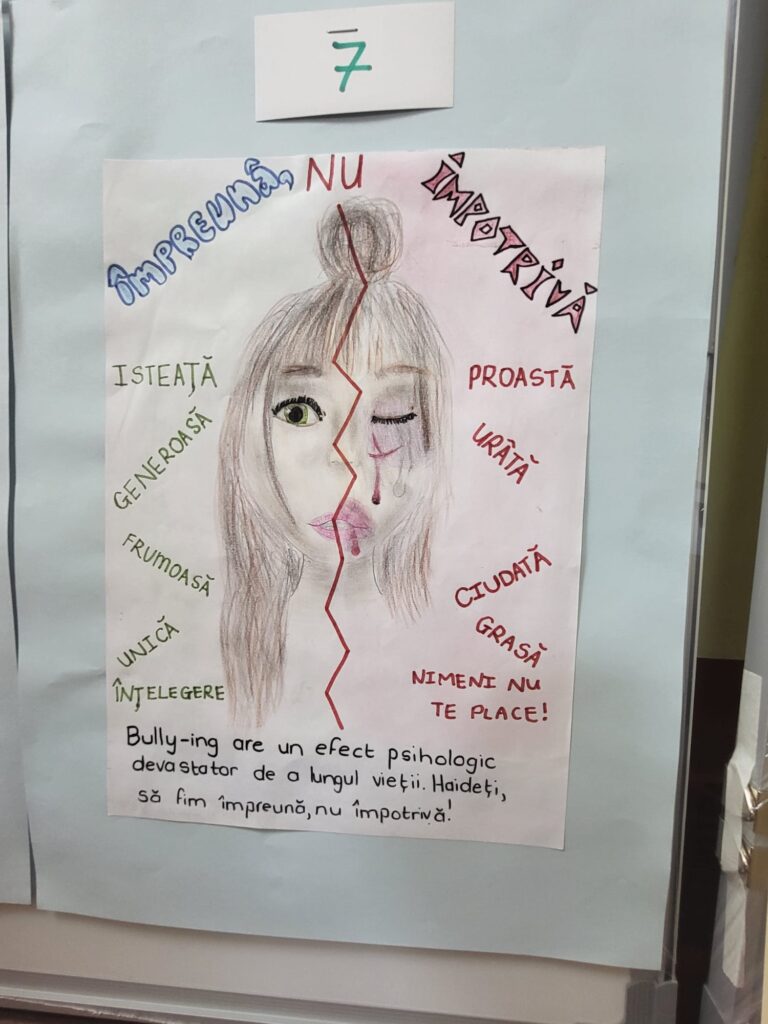 7
ÎMPREUNĂ, NU ÎMPOTRIVĂ
ISTEAȚĂ
GENEROASĂ
FRUMOASĂ
UNICĂ
ÎNȚELEGERE
PROASTĂ
URÂTĂ
CIUDATĂ
GRASĂ
NIMENI NU
TE PLACE!
Bully-ing are un efect psihologic
devastator de a lungul vieții. Haideți,
să fim împreună, nu împotrivă!